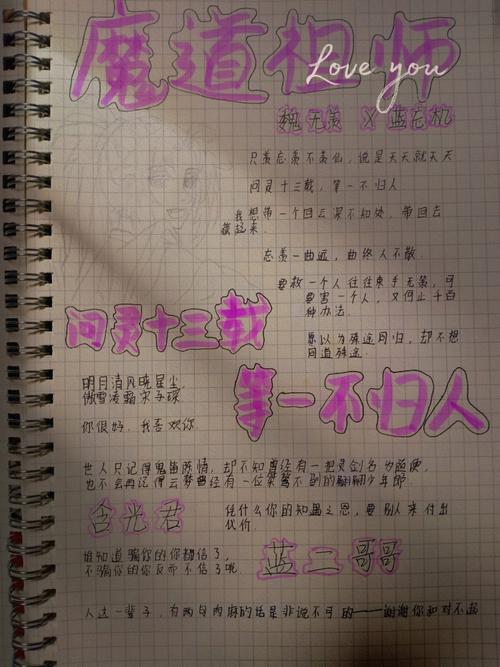 魔道祖师
Love you
魏无羡 X 蓝忘机
只羡忘羡不羡仙，说是天天就天天
问灵十三载，等一不归人
我想带一个回云深不知处，带回去
藏起来.
忘羡一曲远，曲终人不散.
要救一个人往往束手无策，可
要害一个人，又何止千百
种办法.
问灵十三载
原以为殊途同归，却不想
同道殊途.
等一不归人
明月清风晓星尘
傲雪凌霜宋子琛
你很好，我喜欢你.
世人只记得鬼笛陈情，却不知曾经有一把灵剑名为随便，
也不会再记得云梦曾经有一位桀骜不驯的翩翩少年郎.
含光君
凭什么你的知遇之恩，要别人来付出
代价.
谁知道骗你的你都信了，
不骗你的你反而不信了呢.
蓝二哥哥
人这一辈子，有两句肉麻的话是非说不可的——谢谢你和对不起